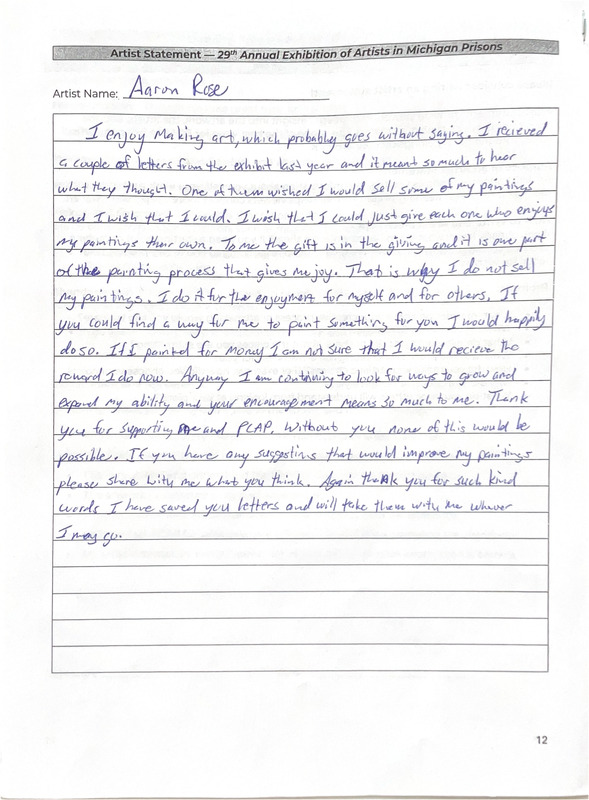 Artist Statement — 29th Annual Exhibition of Artists in Michigan Prisons
Artist Name: Aaron Rose
I enjoy making art, which probably goes without saying. I recieved
a couple of letters from the exhibit last year and it meant so much to hear
what they thought. One of them wished I would sell some of my paintings
and I wish that I could. I wish that I could just give each one who enjoys
my paintings their own. To me the gift is in the giving and it is one part
of the painting process that gives me joy. That is why I do not sell
my paintings. I do it for the enjoyment for myself and for others. If
you could find a way for me to paint something for you I would happily
do so. If I painted for money I am not sure that I would recieve the
reward I do now. Anyway I am continuing to look for ways to grow and
expand my ability and your encouragement means so much to me. Thank
you for supporting me and PCAP. Without you none of this would be
possible. If you have any suggestins that would improve my paintings
please share with me what you think. Again thank you for such kind
words I have saved you letters and will take them with me whever
I may go.
12